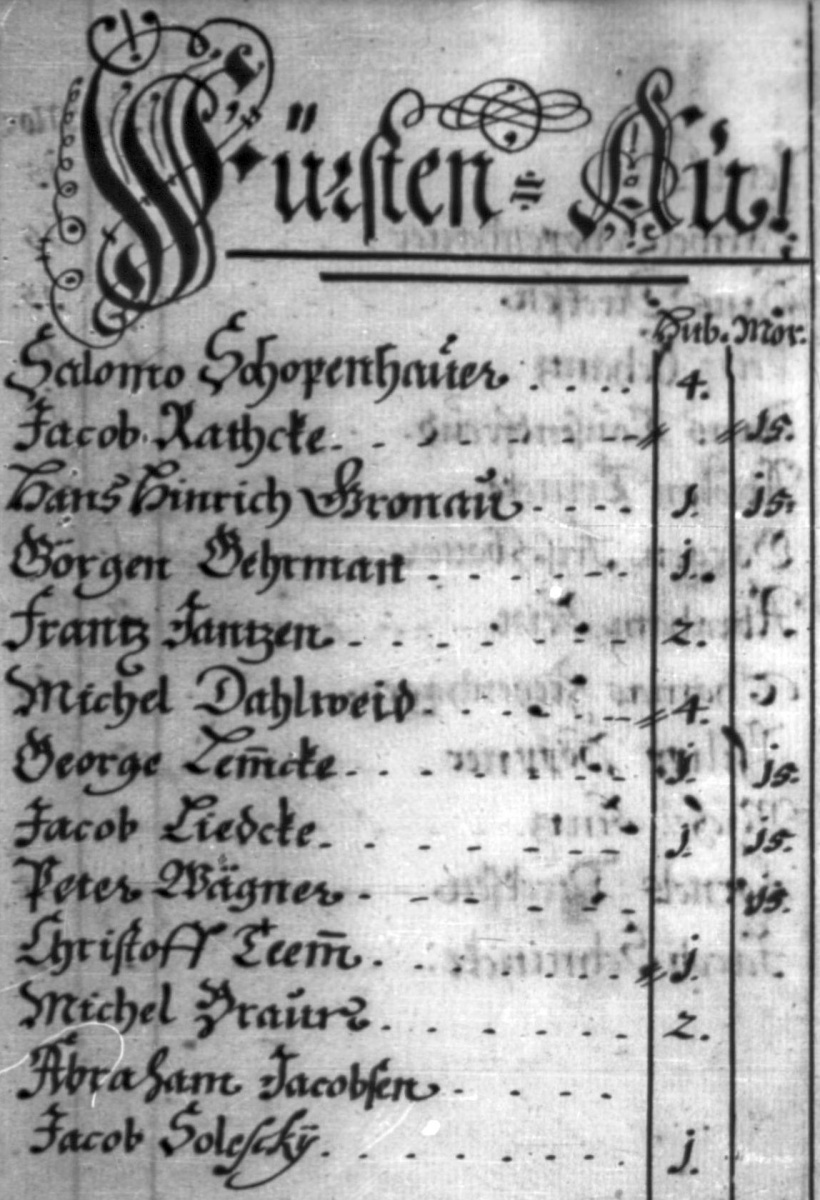 Fürsten = Aü!
Hub. Mor.
Salomo Schopenhaüer . . . . 4.
Jacob Rathcke . . . . . . 15.
Hans Hinrich Gronaü . . . . 1. 15.
Görgen Gehrman . . . . 1.
Frantz Jantzen . . . . . 2.
Michel Dahlweid . . . . . 4.
George Lem̅cke . . . . . . 1. 15.
Jacob Liedcke . . . . . . 1. 15.
Peter Wägner . . . . . 15.
Christoff Teem̅ . . . . . . 1.
Michel Braun . . . . . . 2.
Abraham Jacobsen . . . .
Jacob Solesckÿ . . . . . . . 1.